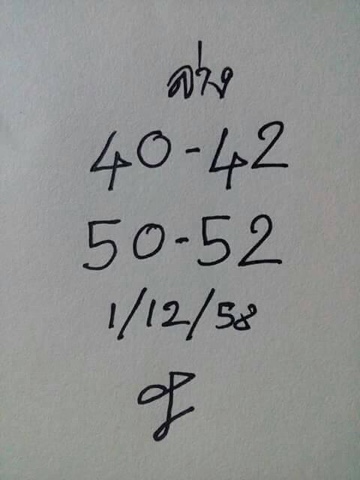 ล่าง
40-42
50-52
1/12/58